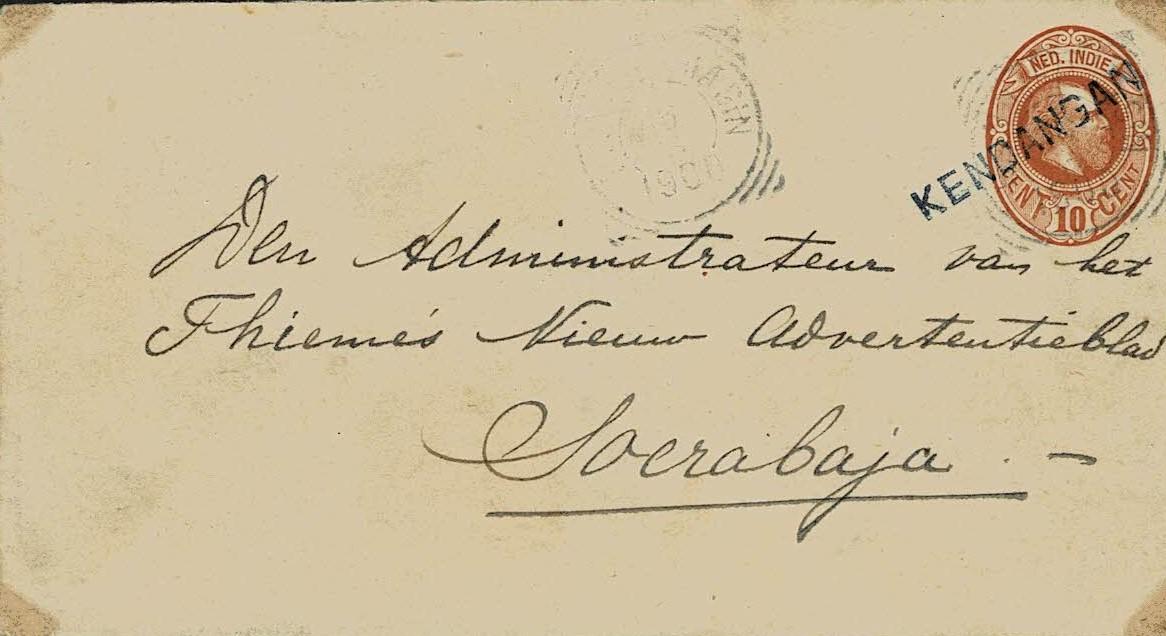 NED. INDIE
KENDANGAN
CENT 10 CENT
1900
Den Administrateur van het
Thieme's Nieuw Advertentieblad
Soerabaja.